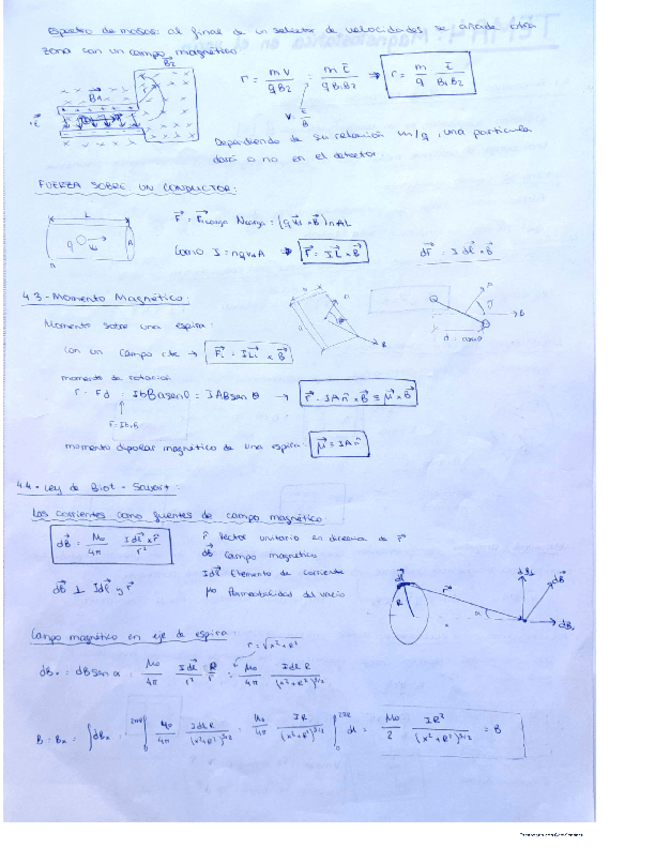 Espectro de masas: al final de un selector de velocidades se añade otra
zona con un campo magnético
r = mv/qB2 = mE/qB1B2 ⇒ r = m/q E/B1B2
v = E/B
Dependiendo de su relación m/q, una partícula
dará o no en el detector.
FUERZA SOBRE UN CONDUCTOR:
Como I = nqvdA ⇒ F = IL × B dF = I dl × B
4.3- Momento Magnético:
Momento sobre una espira:
con un campo cte → Fi = ILi × B
momento de rotación:
F = IbB
momento dipolar magnético de una espira: μ = IAn̂
4.4- Ley de Biot-Savart:
Las corrientes como fuentes de campo magnético:
dB = μ0/4π Idl × r̂/r²
r̂ Vector unitario en dirección de r
dB Campo magnético
Idl Elemento de corriente
μ0 Permeabilidad del vacío
dB ⊥ Idl y r
Campo magnético en eje de espira:
r = √x²+R²
dBx = dB sen α = μ0/4π Idl/r² R/r = μ0/4π IdlR/(x²+R²)^3/2
B = Bx = ∫dBx = ∫ μ0/4π IdlR/(x²+R²)^3/2 = μ0/4π IR/(x²+R²)^3/2 ∫ dl = μ0/2 IR²/(x²+R²)^3/2 = B